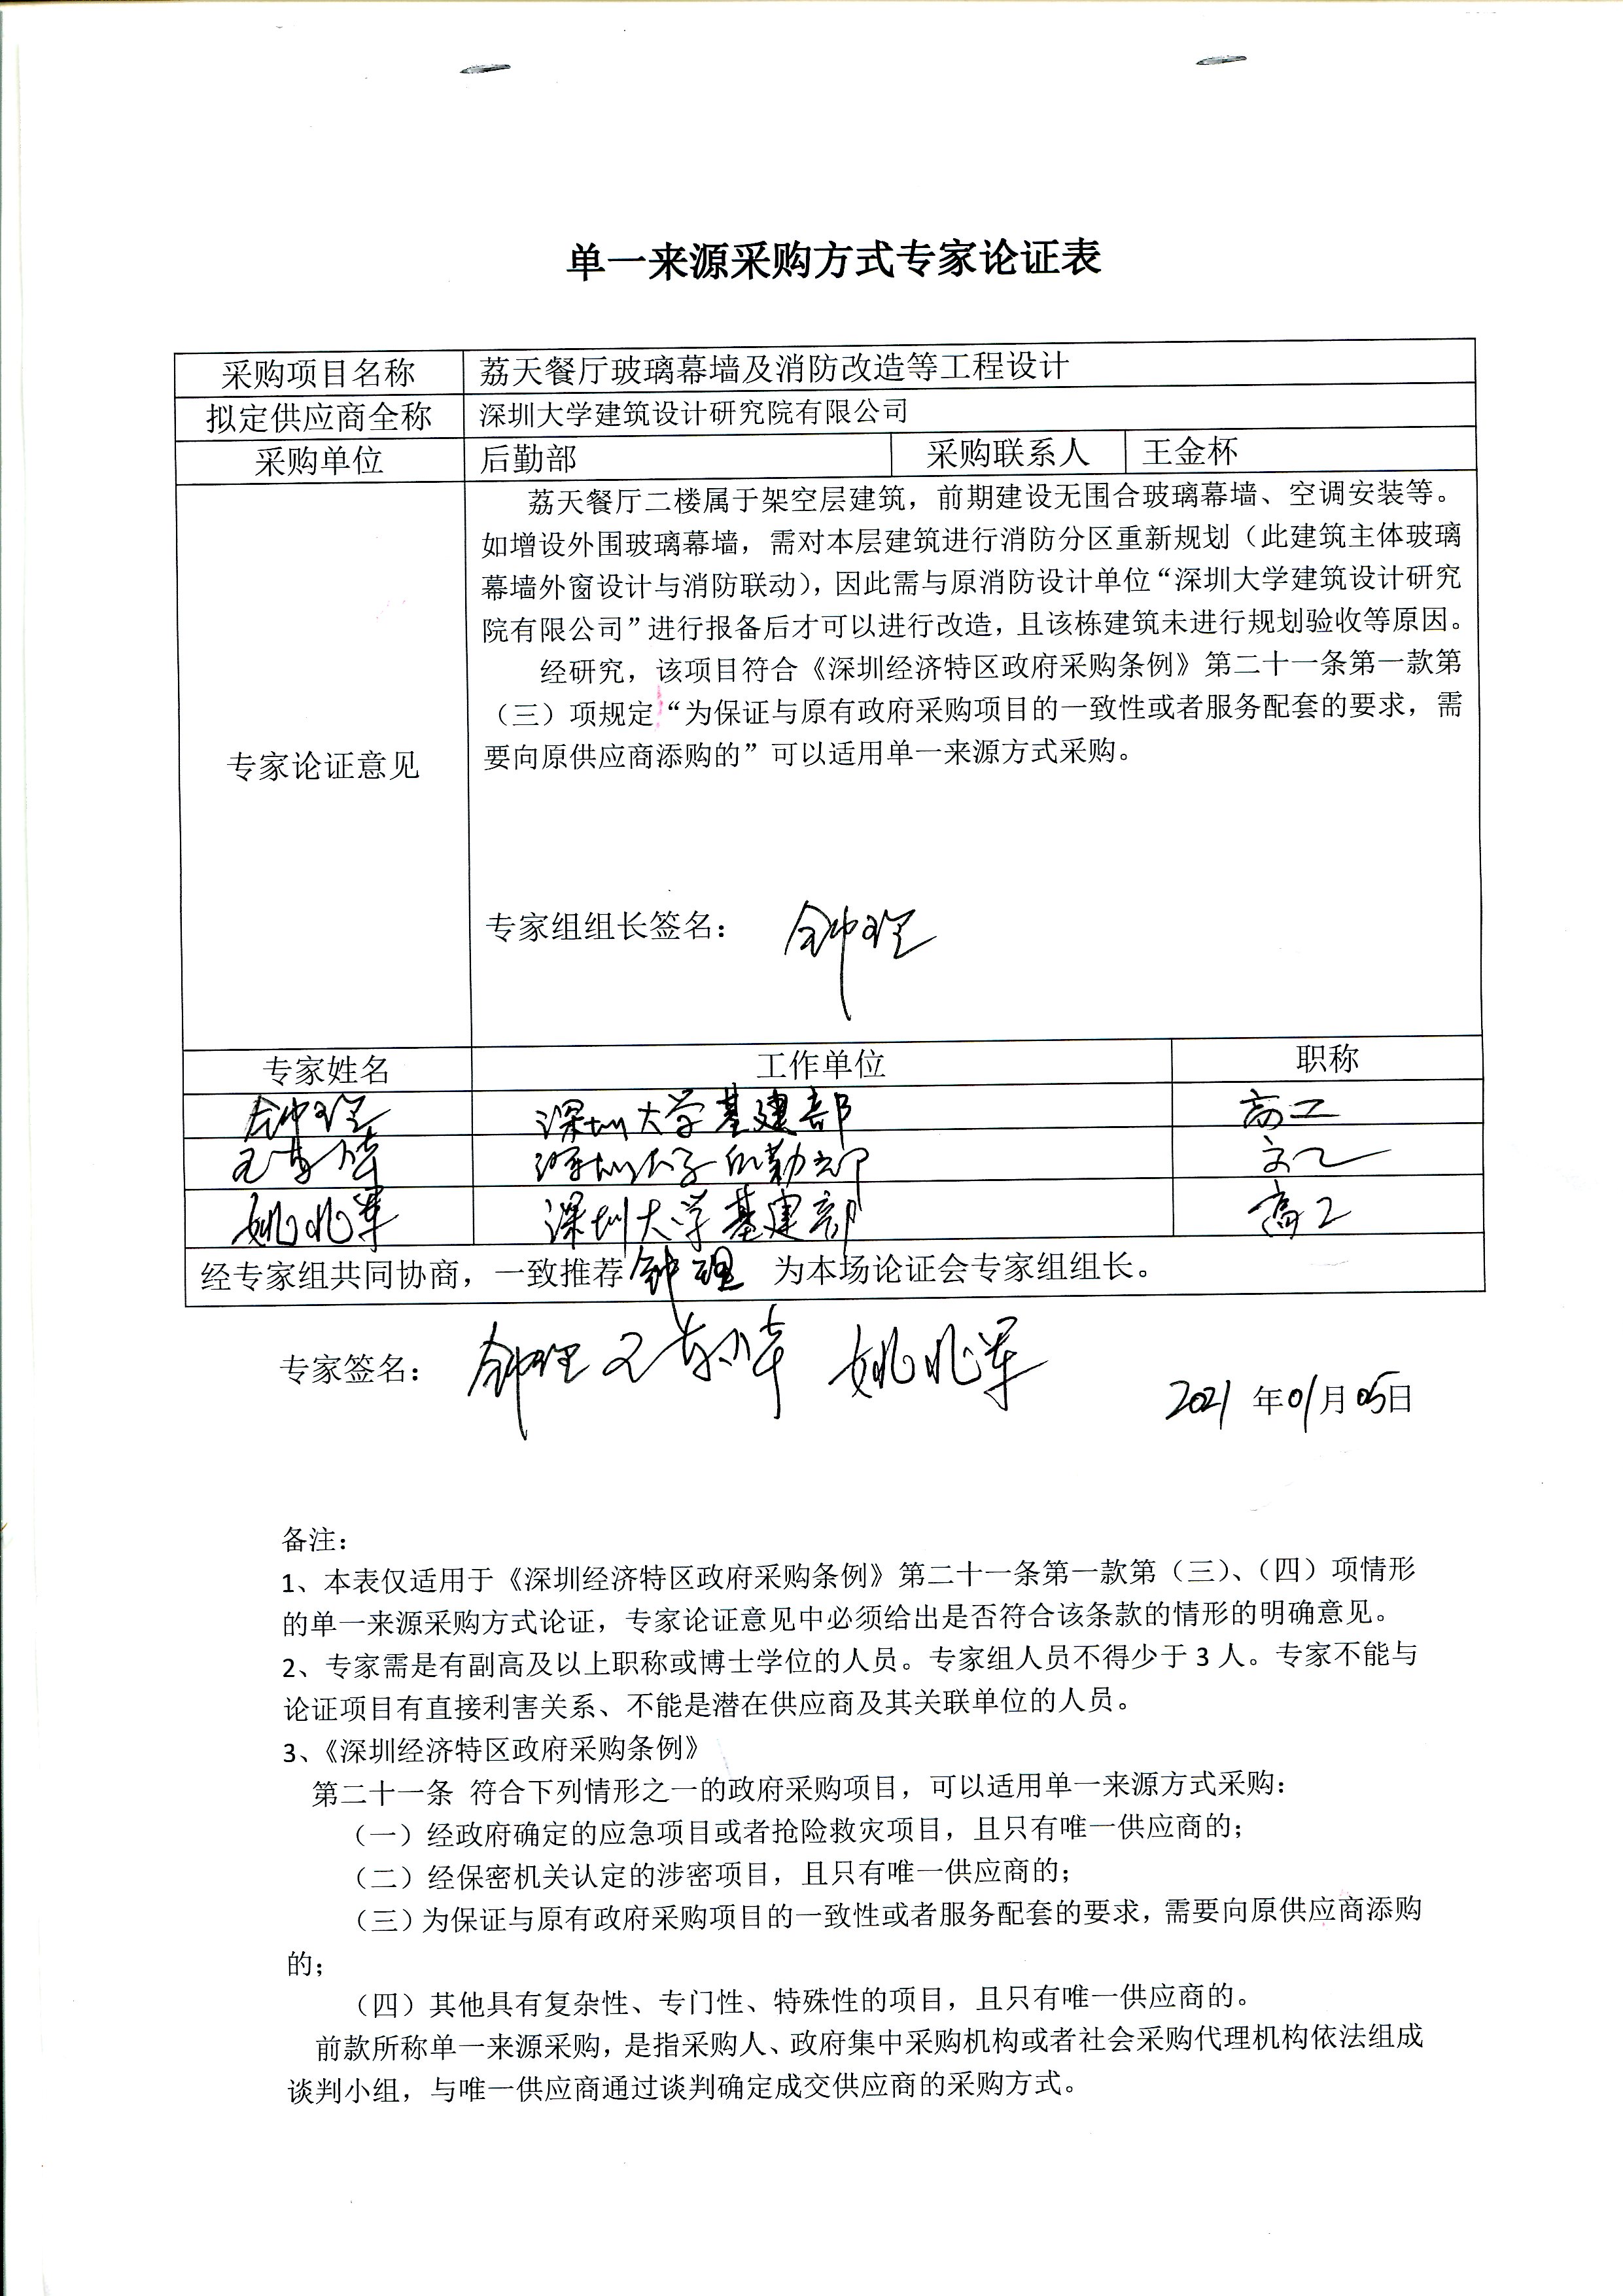 单一来源采购方式专家论证表
采购项目名称 荔天餐厅玻璃幕墙及消防改造等工程设计
拟定供应商全称 深圳大学建筑设计研究院有限公司
采购单位 后勤部 采购联系人 王金杯
荔天餐厅二楼属于架空层建筑，前期建设无围合玻璃幕墙、空调安装等。
如增设外围玻璃幕墙，需对本层建筑进行消防分区重新规划（此建筑主体玻璃
幕墙外窗设计与消防联动），因此需与原消防设计单位“深圳大学建筑设计研究
院有限公司”进行报备后才可以进行改造，且该栋建筑未进行规划验收等原因。
经研究，该项目符合《深圳经济特区政府采购条例》第二十一条第一款第
（三）项规定“为保证与原有政府采购项目的一致性或者服务配套的要求，需
要向原供应商添购的”可以适用单一来源方式采购。
专家论证意见
专家组组长签名： 钟理
专家姓名 工作单位 职称
钟理 深圳大学基建部 高工
深圳大学后勤部
姚兆军 深圳大学基建部 高工
经专家组共同协商，一致推荐 钟理 为本场论证会专家组组长。
专家签名： 钟理 姚兆军
2021 年 01 月 05 日
备注：
1、本表仅适用于《深圳经济特区政府采购条例》第二十一条第一款第（三）、（四）项情形
的单一来源采购方式论证，专家论证意见中必须给出是否符合该条款的情形的明确意见。
2、专家需是有副高及以上职称或博士学位的人员。专家组人员不得少于 3 人。专家不能与
论证项目有直接利害关系、不能是潜在供应商及其关联单位的人员。
3、《深圳经济特区政府采购条例》
第二十一条 符合下列情形之一的政府采购项目，可以适用单一来源方式采购：
（一）经政府确定的应急项目或者抢险救灾项目，且只有唯一供应商的；
（二）经保密机关认定的涉密项目，且只有唯一供应商的；
（三）为保证与原有政府采购项目的一致性或者服务配套的要求，需要向原供应商添购
的；
（四）其他具有复杂性、专门性、特殊性的项目，且只有唯一供应商的。
前款所称单一来源采购，是指采购人、政府集中采购机构或者社会采购代理机构依法组成
谈判小组，与唯一供应商通过谈判确定成交供应商的采购方式。